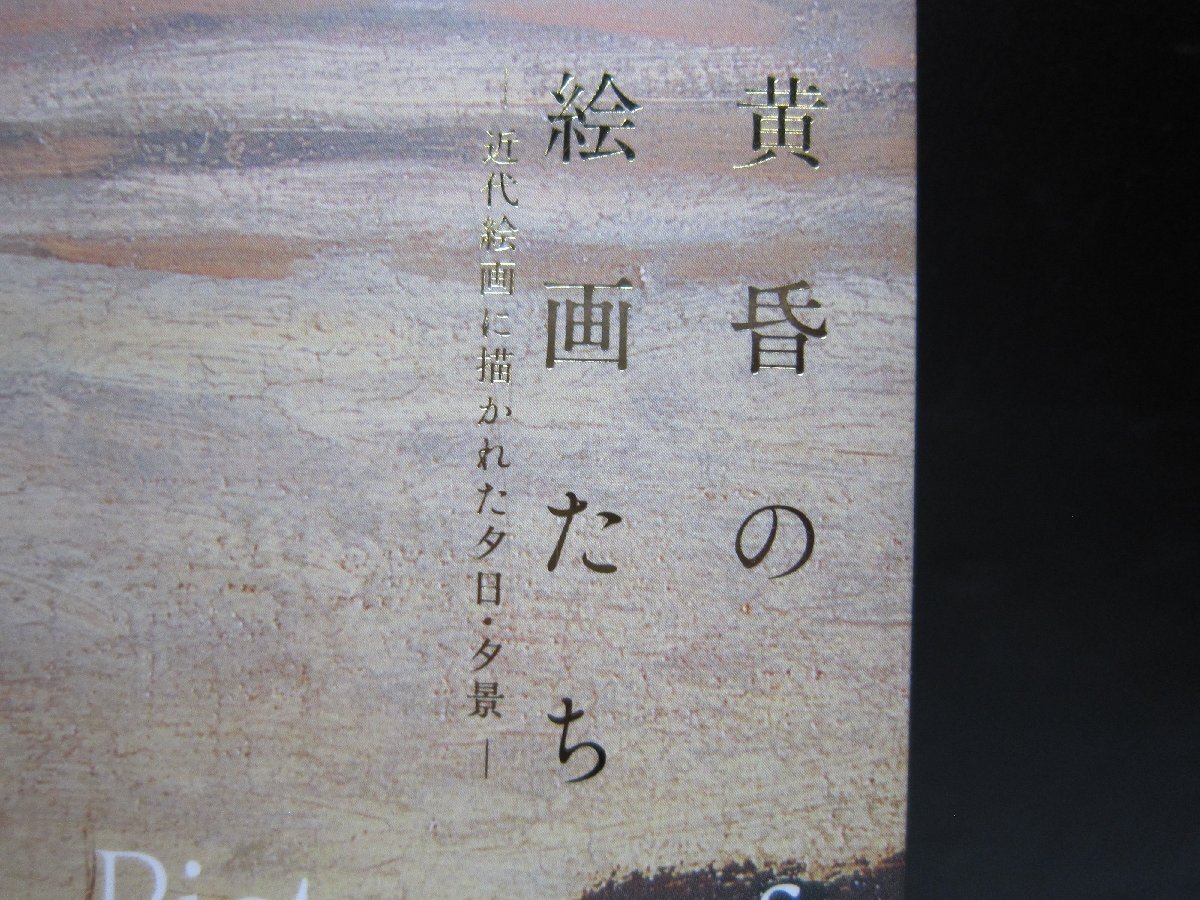 黄昏の
絵画たち
―近代絵画に描かれた夕日・夕景―